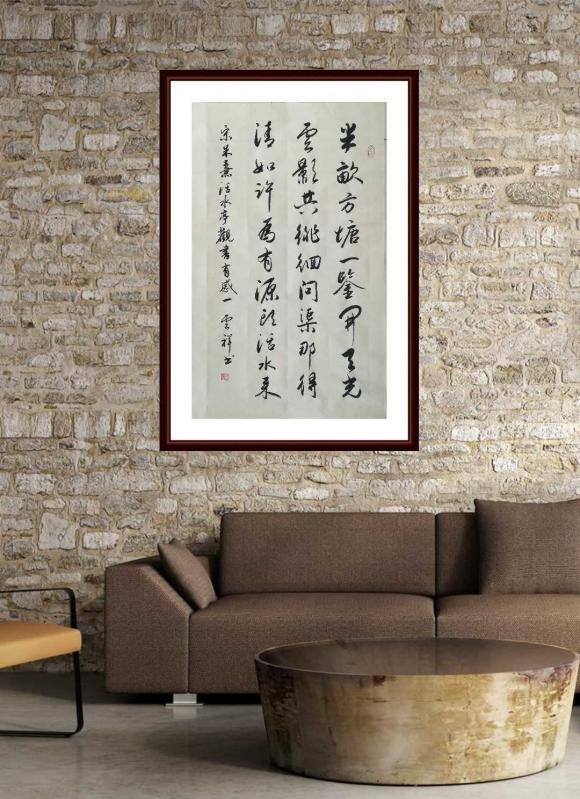 半畝方塘一鑒開天光
雲影共徘徊問渠那得
清如許爲有源頭活水來
宋朱熹活水亭觀書有感一 雲祥書